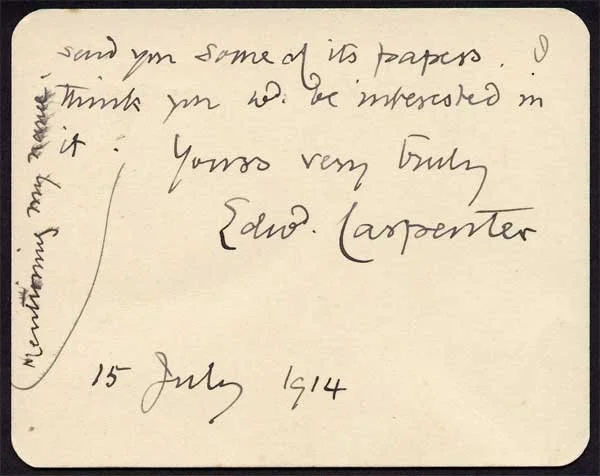 send you some of its papers. I
think you wd. be interested in
it. Yours very truly
Edwd. Carpenter
15 July 1914
mentioning my name.